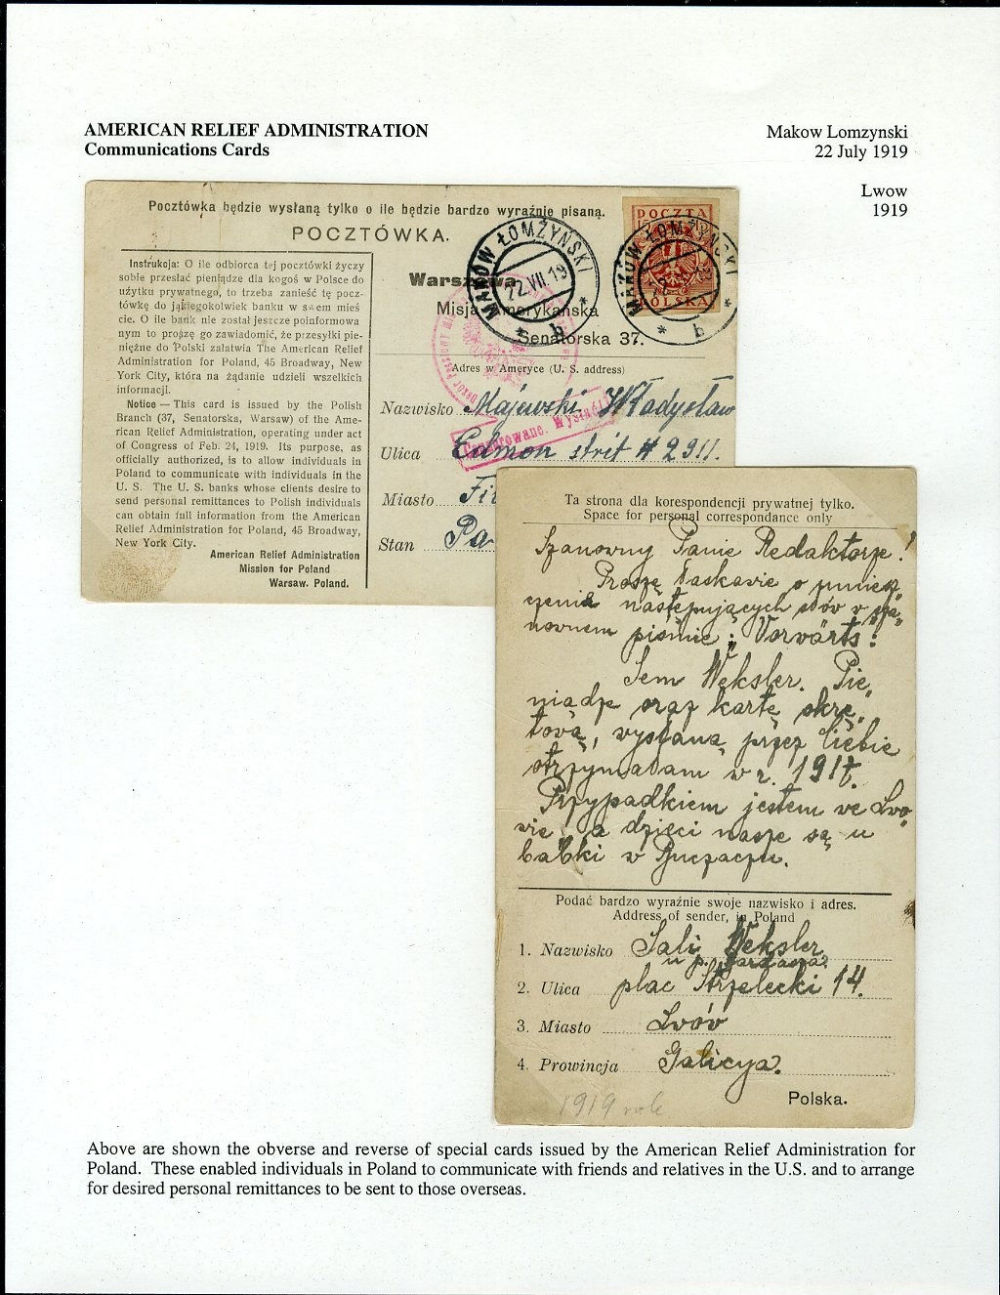 AMERICAN RELIEF ADMINISTRATION
Communications Cards
Makow Lomzynski
22 July 1919
Lwow
1919
Pocztówka będzie wysłaną tylko o ile będzie bardzo wyraźnie pisaną.
POCZTÓWKA.
Instrukcja: O ile odbiorca tej pocztówki życzy
sobie przesłać pieniądze dla kogoś w Polsce do
użytku prywatnego, to trzeba zanieść tę pocz-
tówkę do jakiegokolwiek banku w swem mieś
cie. O ile bank nie został jeszcze poinformowa
nym to proszę go zawiadomić, że przesyłki pie-
niężne do Polski załatwia The American Relief
Administration for Poland, 45 Broadway, New
York City, która na żądanie udzieli wszelkich
informacji.
Notice — This card is issued by the Polish
Branch (37, Senatorska, Warsaw) of the Ame-
rican Relief Administration, operating under act
of Congress of Feb. 24, 1919. Its purpose, as
officially authorized, is to allow individuals in
Poland to communicate with individuals in the
U. S. The U. S. banks whose clients desire to
send personal remittances to Polish individuals
can obtain full information from the American
Relief Administration for Poland, 45 Broadway,
New York City.
American Relief Administration
Mission for Poland
Warsaw. Poland.
POCZTA
POLSKA
MAKÓW ŁOMŻYŃSKI
22.VII.19
* b *
MAKÓW ŁOMŻYŃSKI
* b *
Warszawa
Misja Amerykańska
Senatorska 37.
Adres w Ameryce (U. S. address)
Nazwisko Majewski Władysław
Cenzurowane. Wysłać
Ulica Calmon strit # 2911.
Miasto
Stan Pa
Ta strona dla korespondencji prywatnej tylko.
Space for personal correspondance only
Szanowny Panie Redaktorze!
Proszę łaskawie o umiesz-
czenie następujących słów w sza-
nownem piśmie: Vorwärts:
Sem Weksler. Pie
niądze oraz kartę okrę-
tową, wysłaną przez Ciebie
otrzymałam w r. 191
Przypadkiem jestem we Lwo-
wie, a dzieci nasze są u
babki w Buczaczu.
Podać bardzo wyraźnie swoje nazwisko i adres.
Address of sender, in Poland
1. Nazwisko Sali Weksler
u p.
2. Ulica plac Strzelecki 14.
3. Miasto Lwów
4. Prowincja Galicya.
Polska.
1919 rok
Above are shown the obverse and reverse of special cards issued by the American Relief Administration for
Poland. These enabled individuals in Poland to communicate with friends and relatives in the U.S. and to arrange
for desired personal remittances to be sent to those overseas.